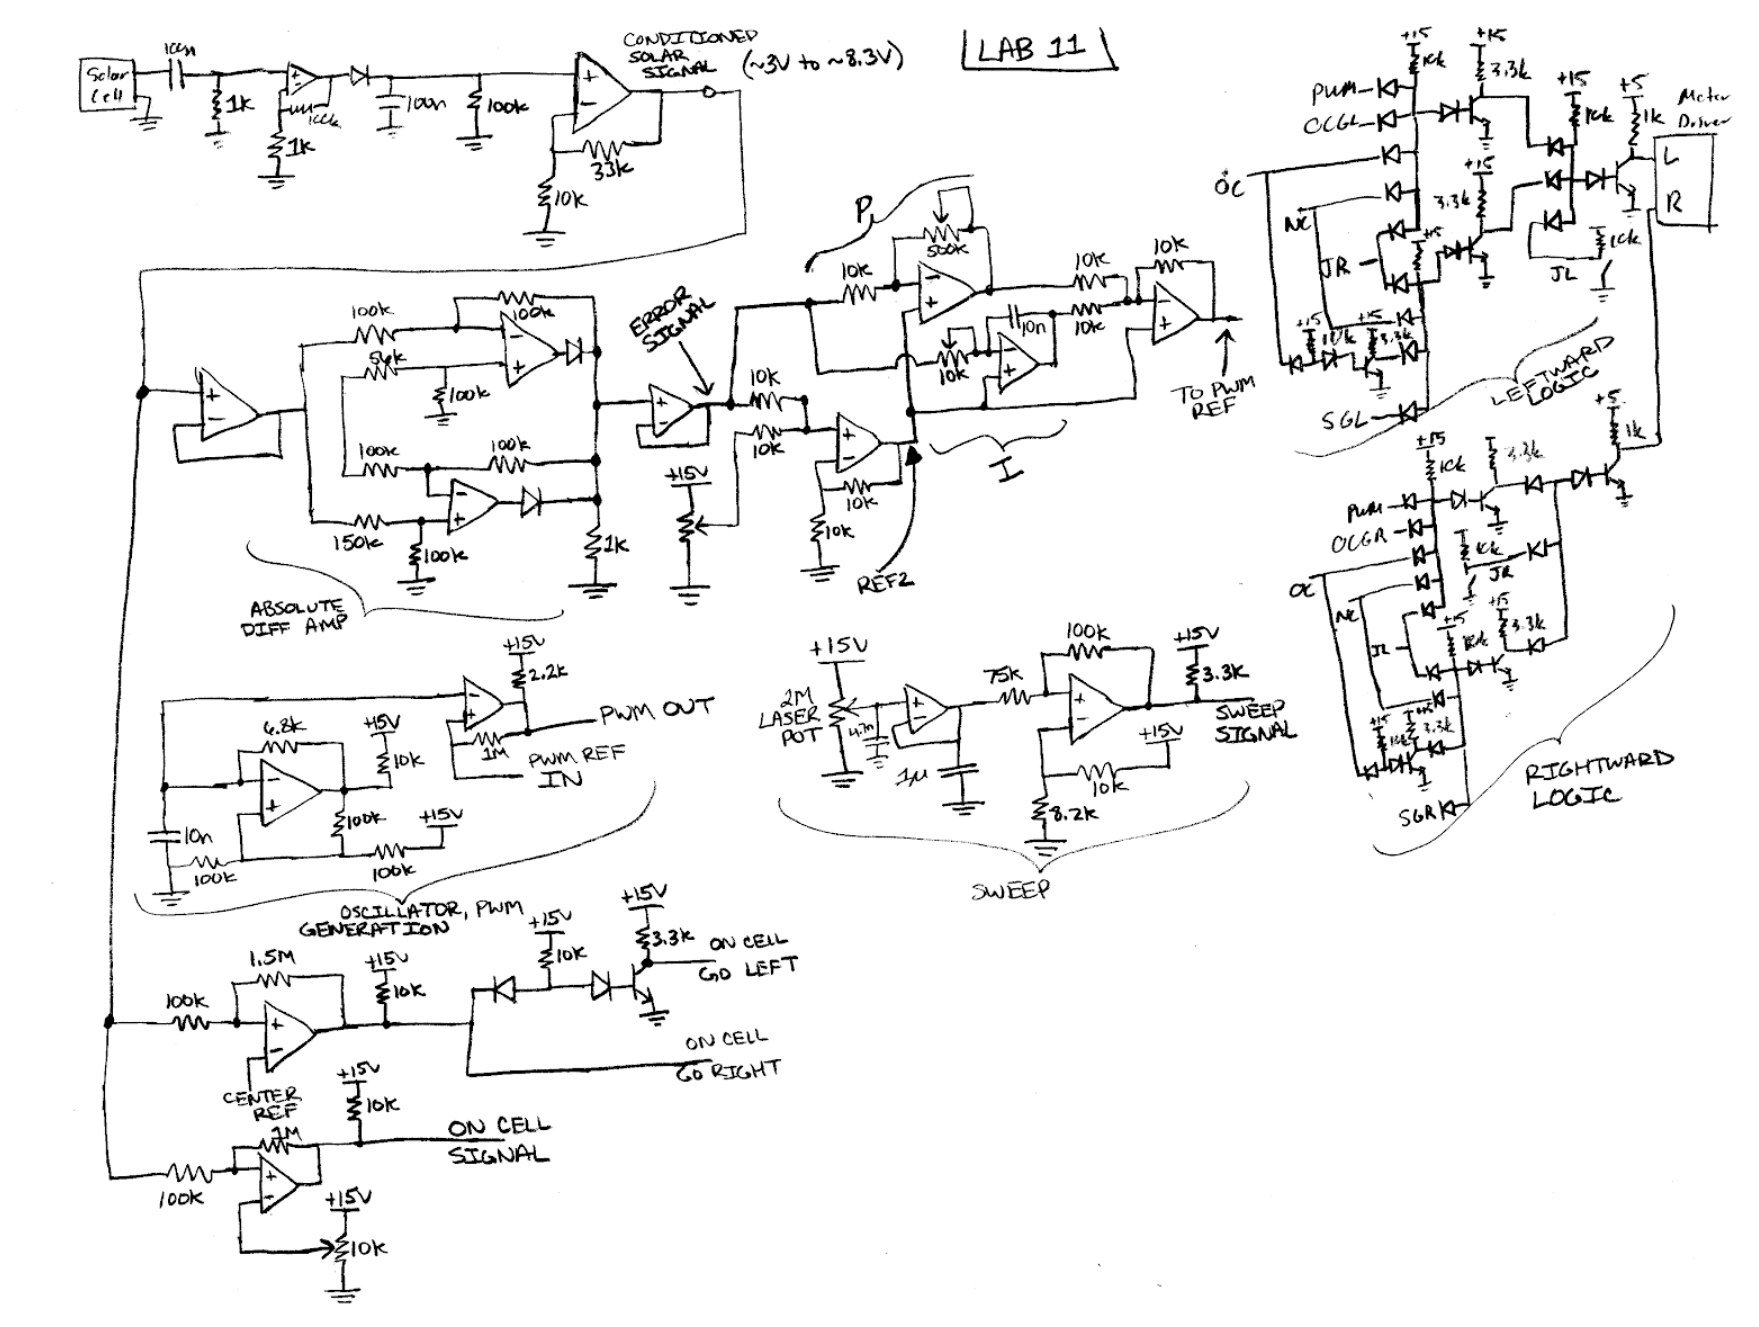 LAB 11
Solar
Cell
100n
1k
100k
1k
100n
100k
CONDITIONED
SOLAR
SIGNAL (~3V to ~8.3V)
33k
10k
100k
100k
56k
100k
100k
100k
150k
100k
1k
ABSOLUTE
DIFF AMP
ERROR
SIGNAL
10k
10k
+15V
10k
10k
REF2
P
10k
500k
10k
10n
I
10k
10k
10k
TO PWM
REF
+15V
2.2k
PWM OUT
1M
PWM REF
IN
6.8k
+15V
10k
10n
100k
100k
+15V
100k
OSCILLATOR, PWM
GENERATION
+15V
2M
LASER
POT
4.7n
1μ
75k
100k
+15V
3.3k
SWEEP
SIGNAL
+15V
10k
8.2k
SWEEP
1.5M
100k
+15V
10k
CENTER
REF
+15V
10k
+15V
3.3k
ON CELL
GO LEFT
ON CELL
GO RIGHT
+15V
10k
1M
100k
ON CELL
SIGNAL
+15V
10k
+15
10k
+15
3.3k
PWM
OCGL
OC
NC
JR
+15
+15
3.3k
+15
10k
+5
1k
Motor
Driver
L
R
10k
JL
+15
10k
+15
3.3k
SGL
LEFTWARD
LOGIC
+15
10k
3.3k
+5
1k
PWM
OCGR
OC
NC
JL
10k
JR
+15
10k
+15
3.3k
+15
10k
+15
3.3k
SGR
RIGHTWARD
LOGIC